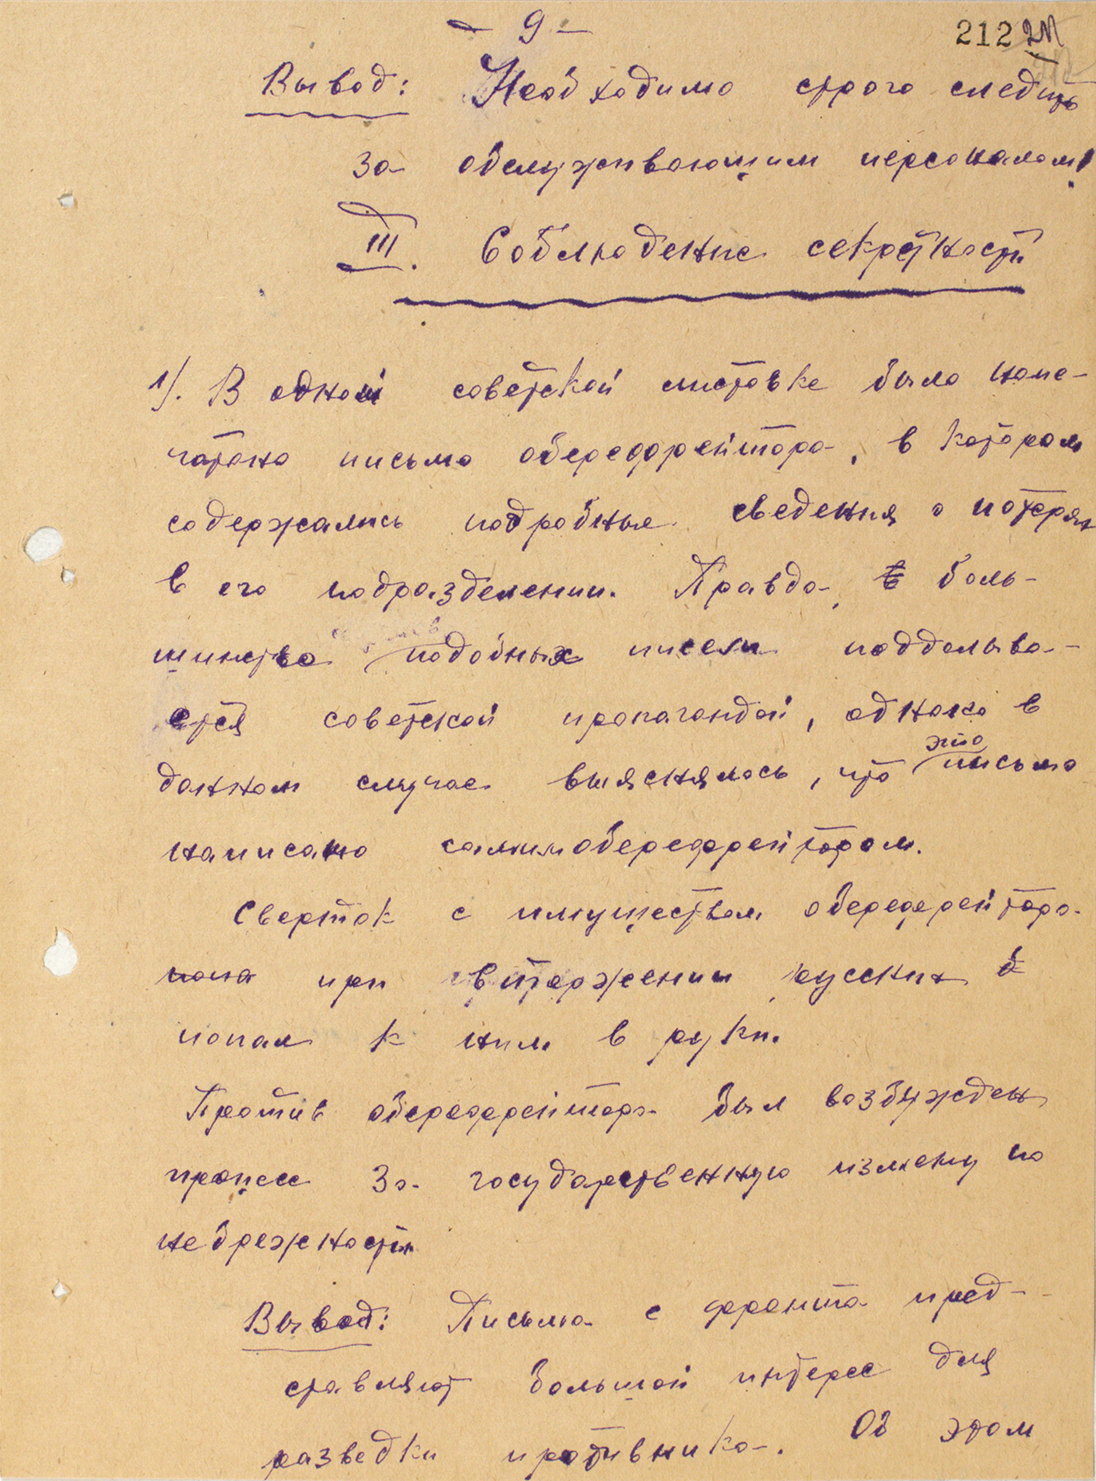 - 9 -
212
Вывод: Необходимо строго следить
за обслуживающим персоналом!
III. Соблюдение секретности
1/. В одной советской листовке было напе-
чатано письмо оберефрейтора, в котором
содержались подробные сведения о потерях
в его подразделении. Правда, боль-
шинство подобных писем подделыва-
ется советской пропагандой, однако в
данном случае выяснялось, что это письмо
написано самим оберефрейтором.
Сверток с имуществом оберефрейтора
при вторжении русских
попал к ним в руки.
Против оберефрейтора был возбужден
процесс за государственную измену по
небрежности.
Вывод: Письма с фронта пред-
ставляют большой интерес для
разведки противника. Об этом